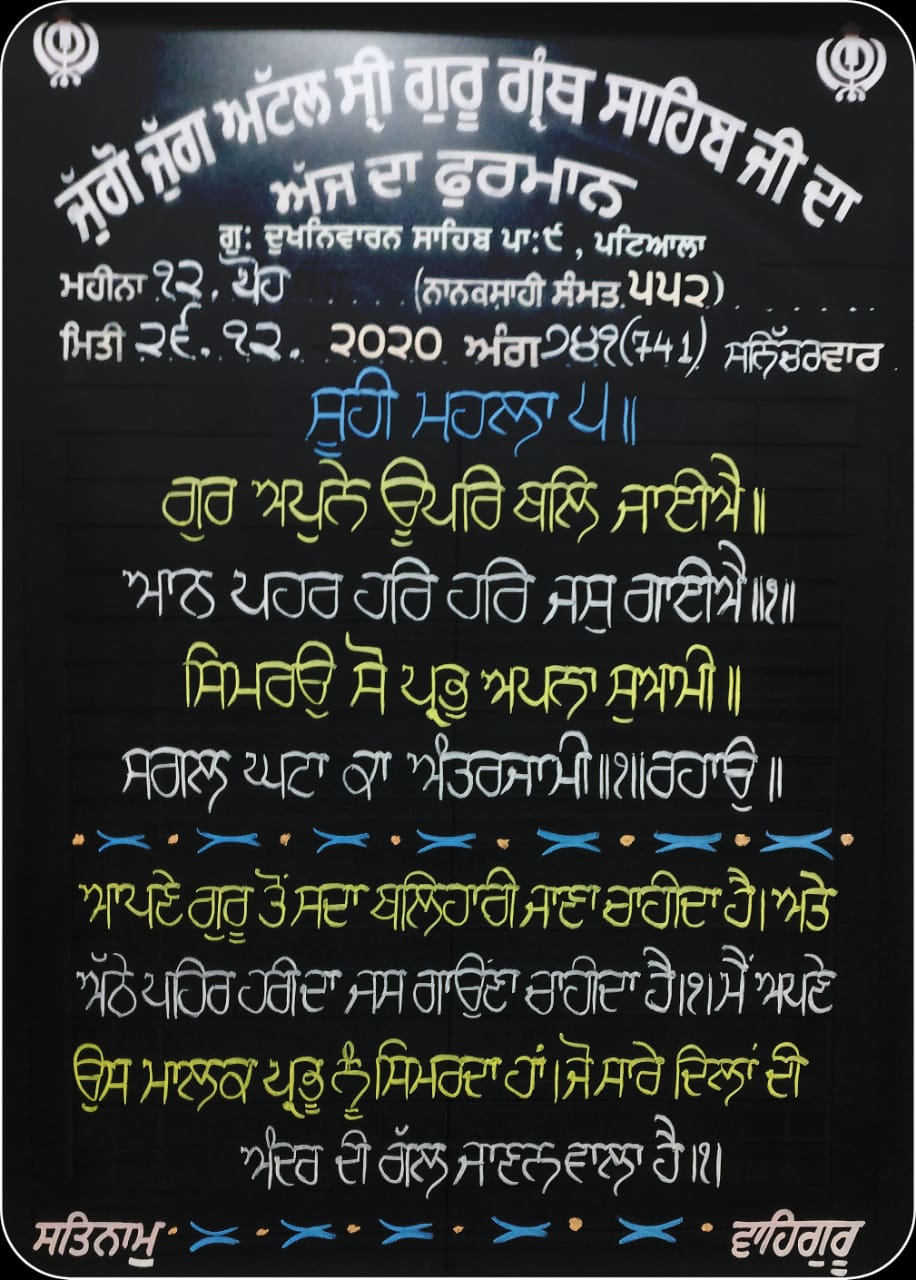 ਜੁੱਗੋ ਜੁੱਗ ਅਟੱਲ ਸ੍ਰੀ ਗੁਰੂ ਗ੍ਰੰਥ ਸਾਹਿਬ ਜੀ ਦਾ
ਅੱਜ ਦਾ ਫੁਰਮਾਨ
ਗੁ: ਦੁਖਨਿਵਾਰਨ ਸਾਹਿਬ ਪਾ:੯ , ਪਟਿਆਲਾ
ਮਹੀਨਾ ੧੨. ਪੋਹ (ਨਾਨਕਸ਼ਾਹੀ ਸੰਮਤ ੫੫੨)
ਮਿਤੀ ੨੬. ੧੨. ੨੦੨੦ ਅੰਗ ੭੪੧(741) ਸਨਿੱਚਰਵਾਰ
ਸੂਹੀ ਮਹਲਾ ੫॥
ਗੁਰ ਅਪੁਨੇ ਊਪਰਿ ਬਲਿ ਜਾਈਐ॥
ਆਠ ਪਹਰ ਹਰਿ ਹਰਿ ਜਸੁ ਗਾਈਐ॥੧॥
ਸਿਮਰਉ ਸੋ ਪ੍ਰਭੁ ਅਪਨਾ ਸੁਆਮੀ॥
ਸਗਲ ਘਟਾ ਕਾ ਅੰਤਰਜਾਮੀ॥੧॥ਰਹਾਉ॥
ਆਪਣੇ ਗੁਰੂ ਤੋਂ ਸਦਾ ਬਲਿਹਾਰੀ ਜਾਣਾ ਚਾਹੀਦਾ ਹੈ। ਅਤੇ
ਅੱਠੇ ਪਹਿਰ ਹਰੀ ਦਾ ਜਸ ਗਾਉਂਣਾ ਚਾਹੀਦਾ ਹੈ।੧। ਮੈਂ ਅਪਣੇ
ਉਸ ਮਾਲਕ ਪ੍ਰਭੂ ਨੂੰ ਸਿਮਰਦਾ ਹਾਂ। ਜੋ ਸਾਰੇ ਦਿਲਾਂ ਦੀ
ਅੰਦਰ ਦੀ ਗੱਲ ਜਾਣਨ ਵਾਲਾ ਹੈ।੧।
ਸਤਿਨਾਮੁ ਵਾਹਿਗੁਰੂ